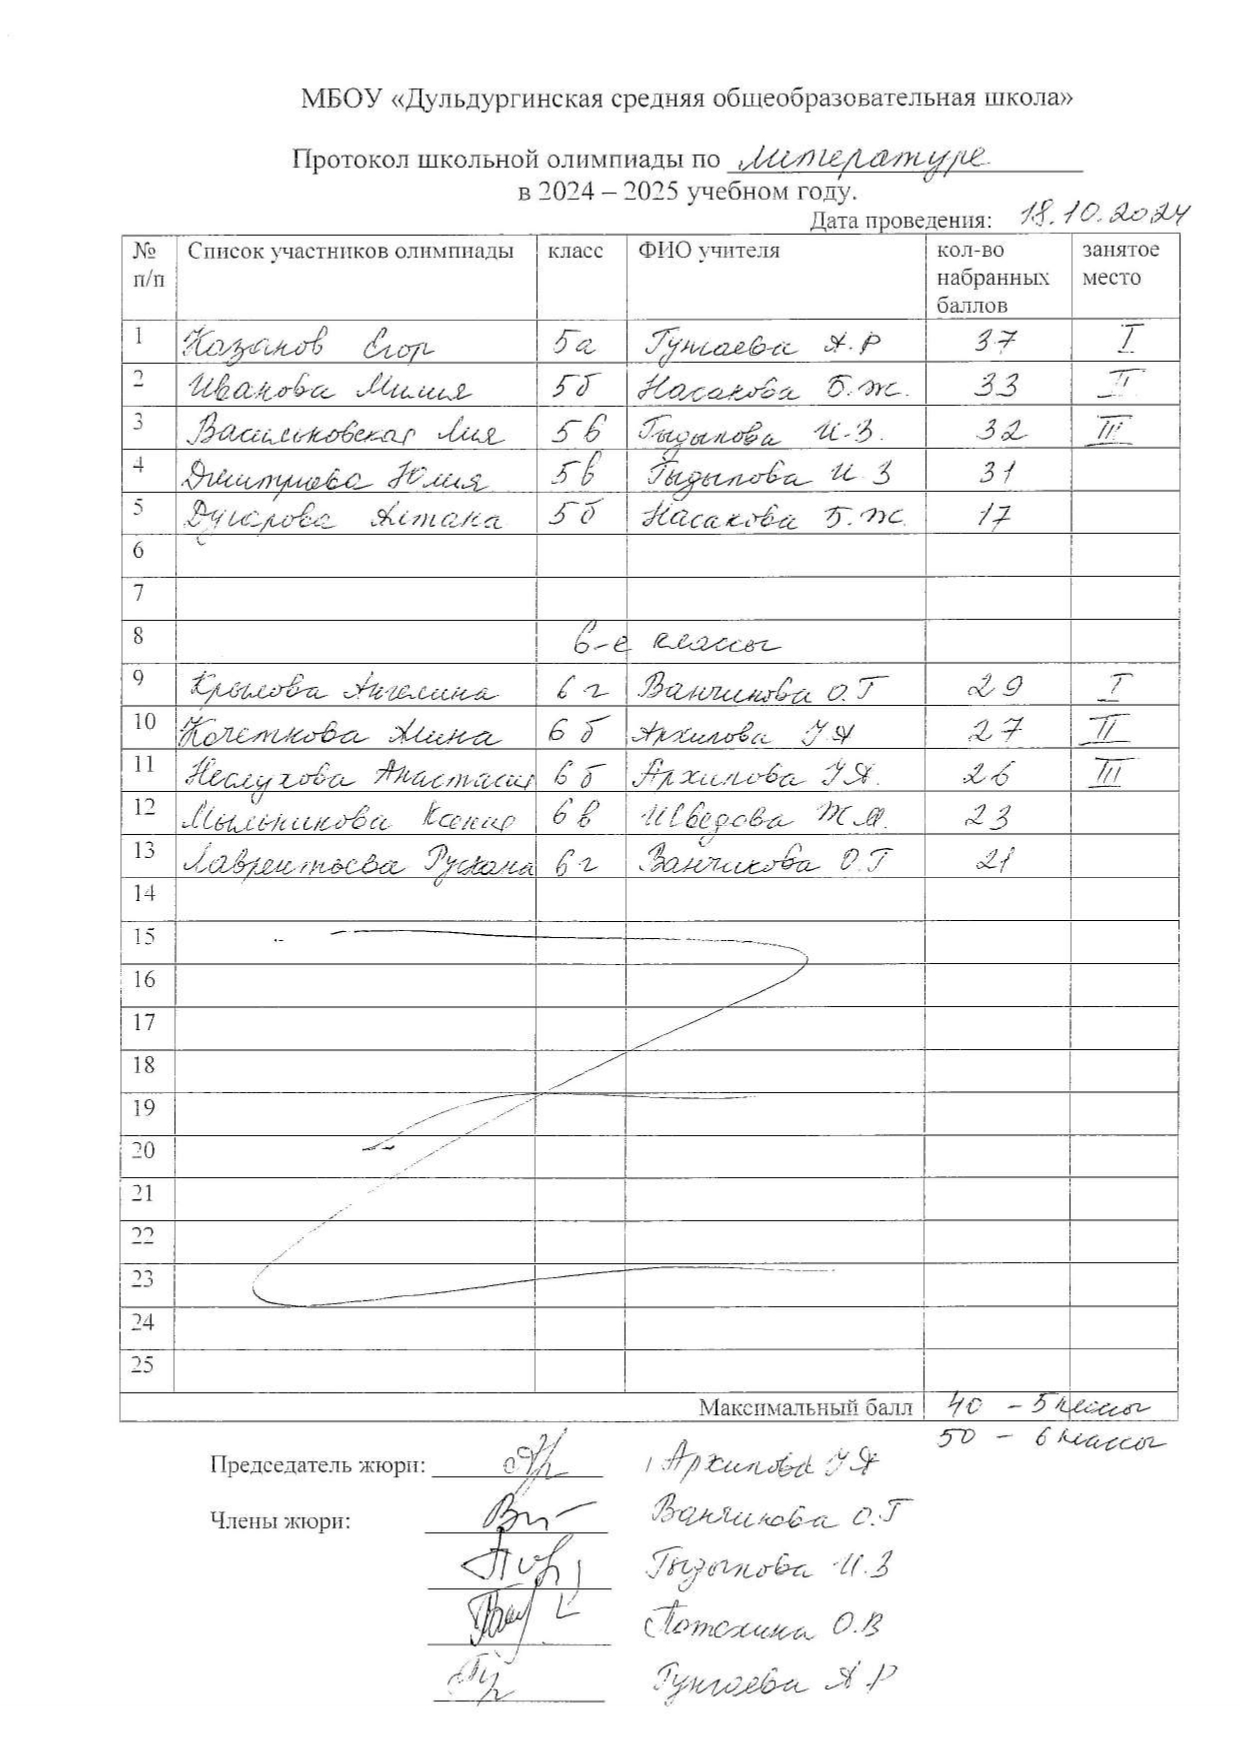 МБОУ «Дульдургинская средняя общеобразовательная школа»
Протокол школьной олимпиады по литературе
в 2024 – 2025 учебном году.
Дата проведения: 18.10.2024
№ п/п Список участников олимпиады класс ФИО учителя кол-во набранных баллов занятое место
1 Казанов Егор 5а Гунгаева А.Р 37 I
2 Иванова Милия 5б Насакова Б.Ж. 33 II
3 Васильковская Лия 5в Гыдыпова И.З. 32 III
4 Дмитриева Юлия 5в Гыдыпова И З 31
5 Дугарова Алтана 5б Насакова Б.Ж. 17
6
7
8 6-е классы
9 Крылова Ангелина 6г Ванчикова О.Г 29 I
10 Кочеткова Алина 6б Архипова У.Я 27 II
11 Неслухова Анастасия 6б Архипова У.Я. 26 III
12 Мыльникова Ксения 6в Шведова Ж.М. 23
13 Лаврентьева Руслана 6г Ванчикова О.Г 21
14
15
16
17
18
19
20
21
22
23
24
25
Максимальный балл 40 – 5 классы
50 – 6 классы
Председатель жюри: Архипова У Я
Члены жюри: Ванчикова О.Г
Гыдыпова И.З
Потехина О.В
Гунгаева А Р